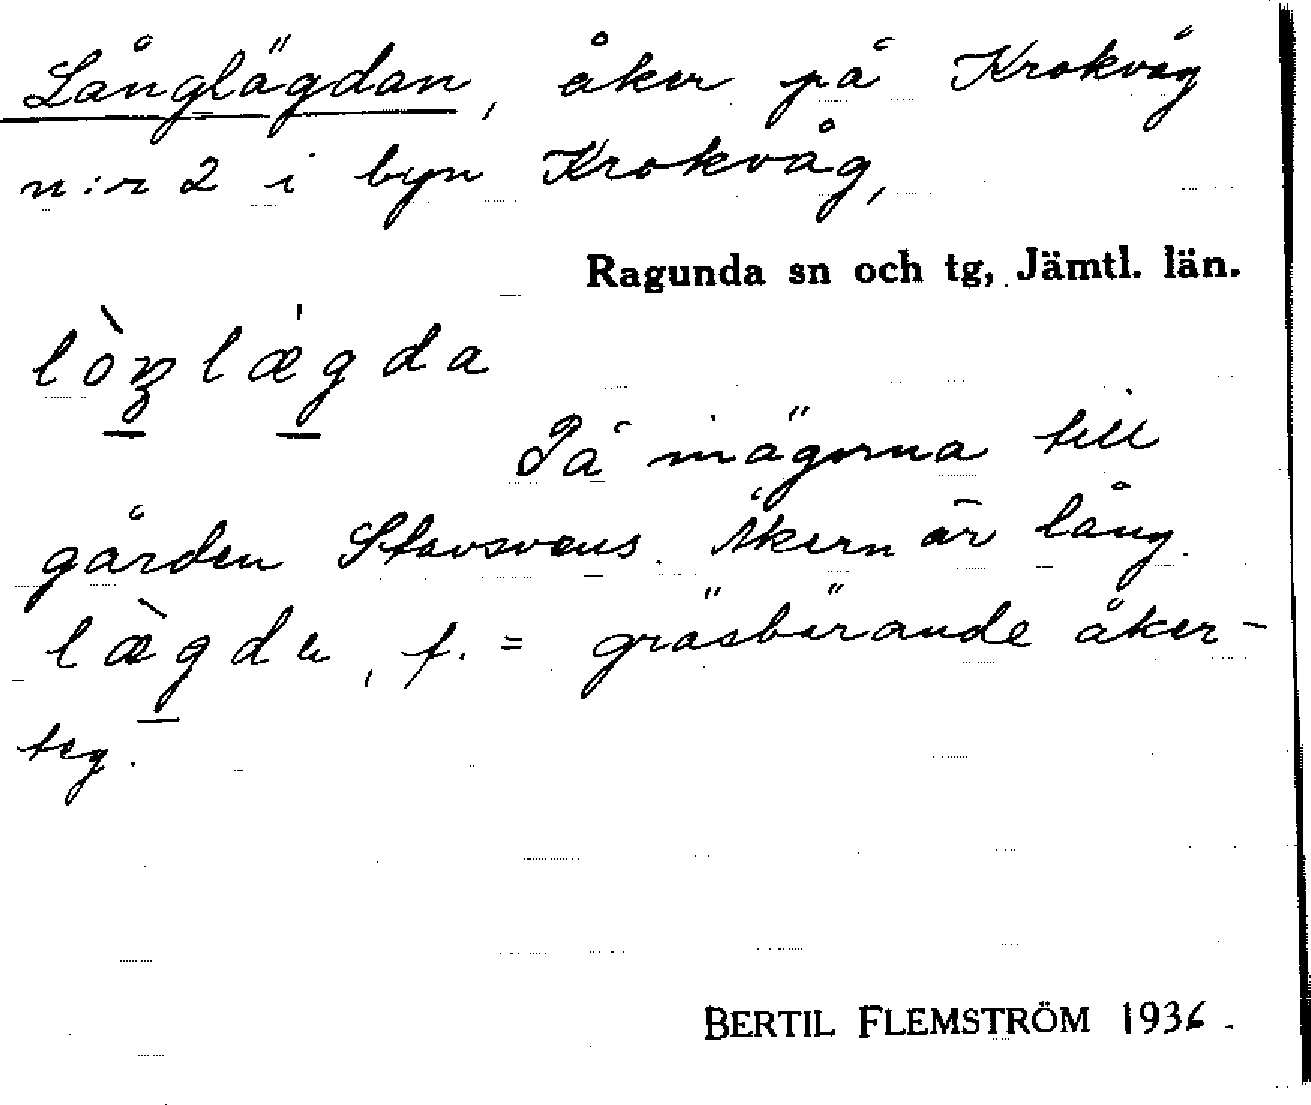 Långlägdan, åker på Krokvåg
n:r 2 i byn Krokvåg,
Ragunda sn och tg, Jämtl. län.
lòŋlægda
På inägorna till
gården Stavsvens. Åkern är lång.
lægda, f. = gräsbärande åker-
teg.
BERTIL FLEMSTRÖM 1936.